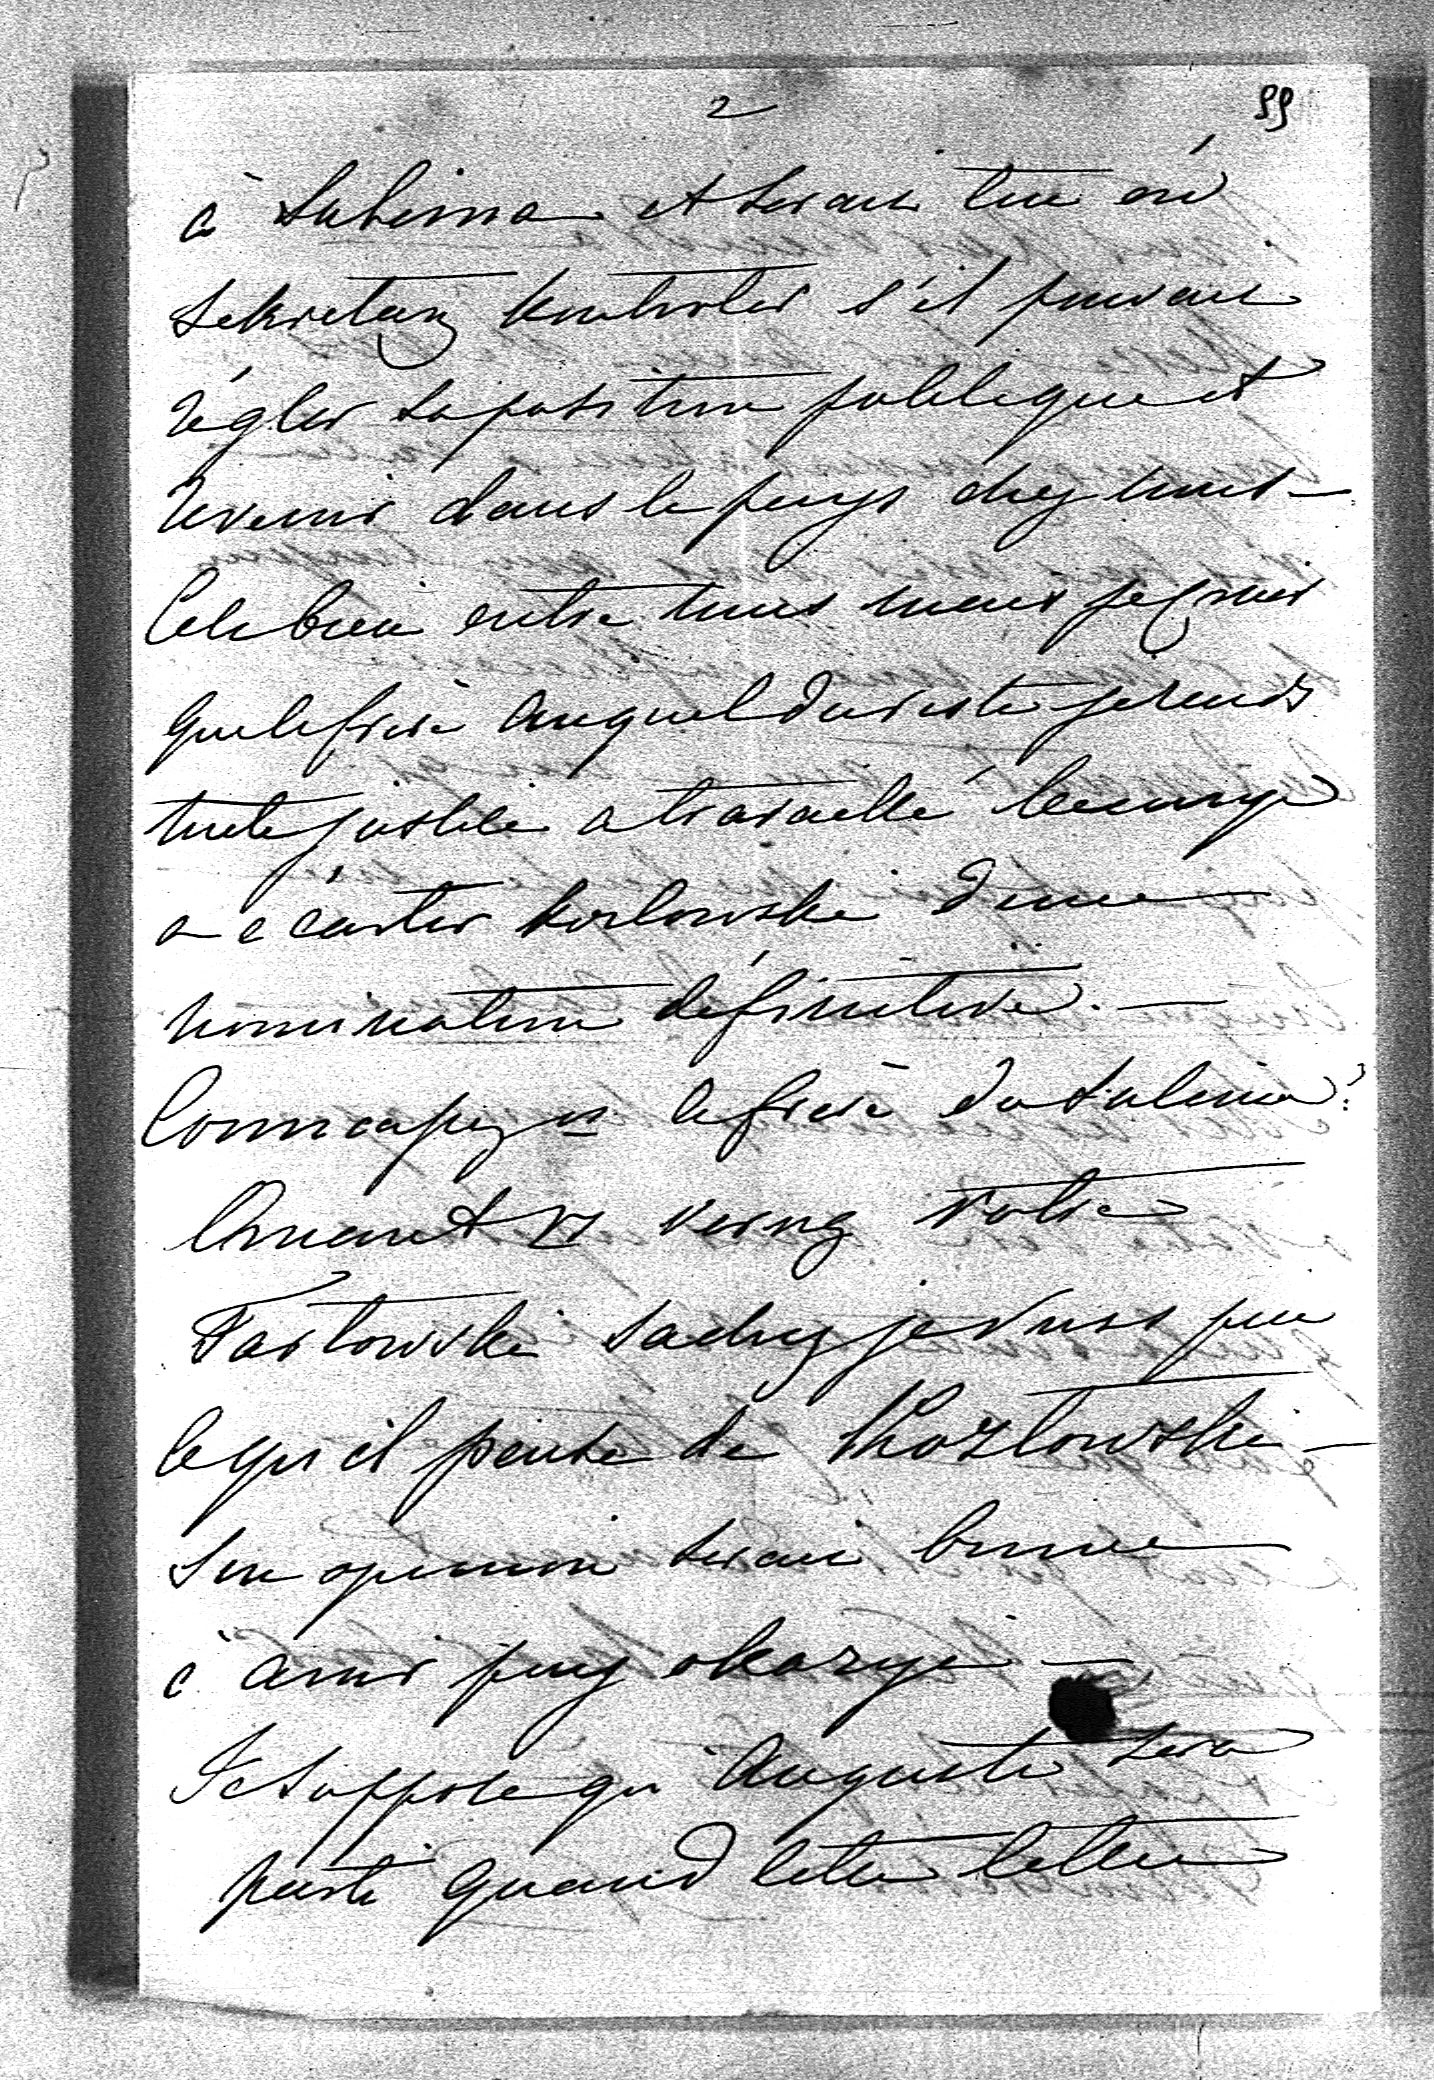 2 99
à Sulima et serait
sekretarz kontroler s'il pouvait
régler sa position publique et
revenir dans le pays chez nous —
Cela bien entre nous mais je crois
que le frère auquel du reste je rends
toute justice a travaillé
a écarter Kozlowski d'une
nomination définitive. —
Connaissez vs le frère du Sulima?
Quand vs verrez Votre
Tarlowski sachez je vous prie
ce qu'il pense de Kozlowski —
Son opinion serait bonne
à avoir przy okazyi —
Je suppose qu'Auguste sera
parti quand cette lettre